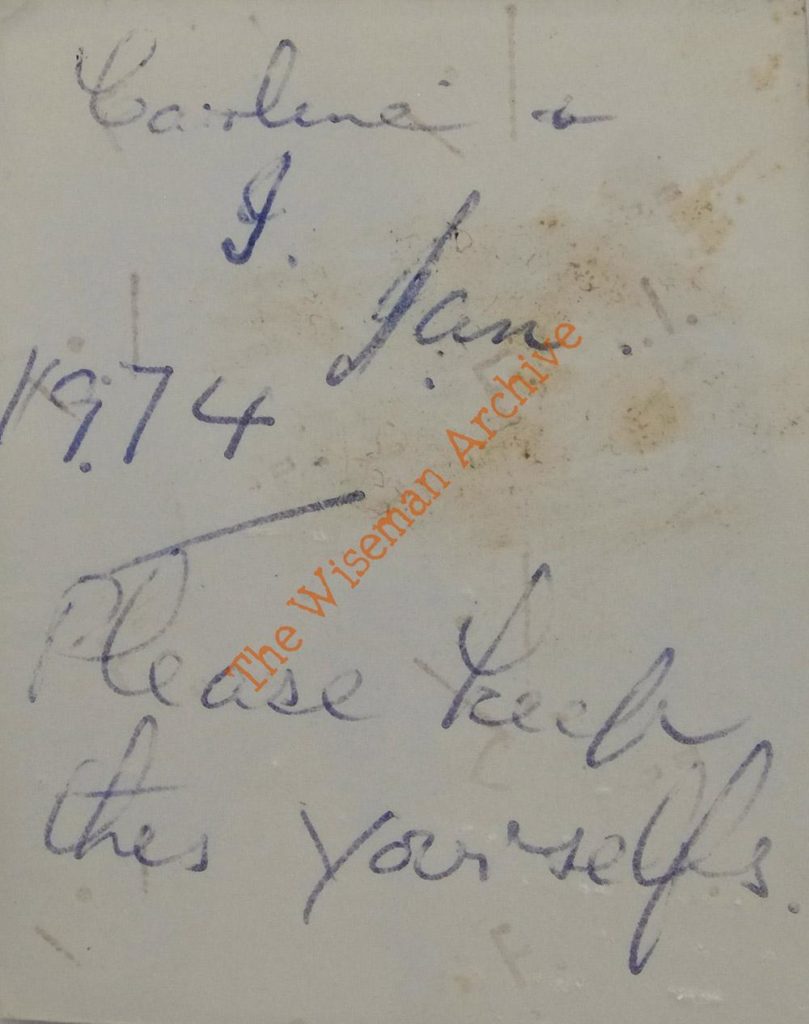 Caroline &
I.
Jan.
1974
Please keep
this yourselfs.
The Wiseman Archive